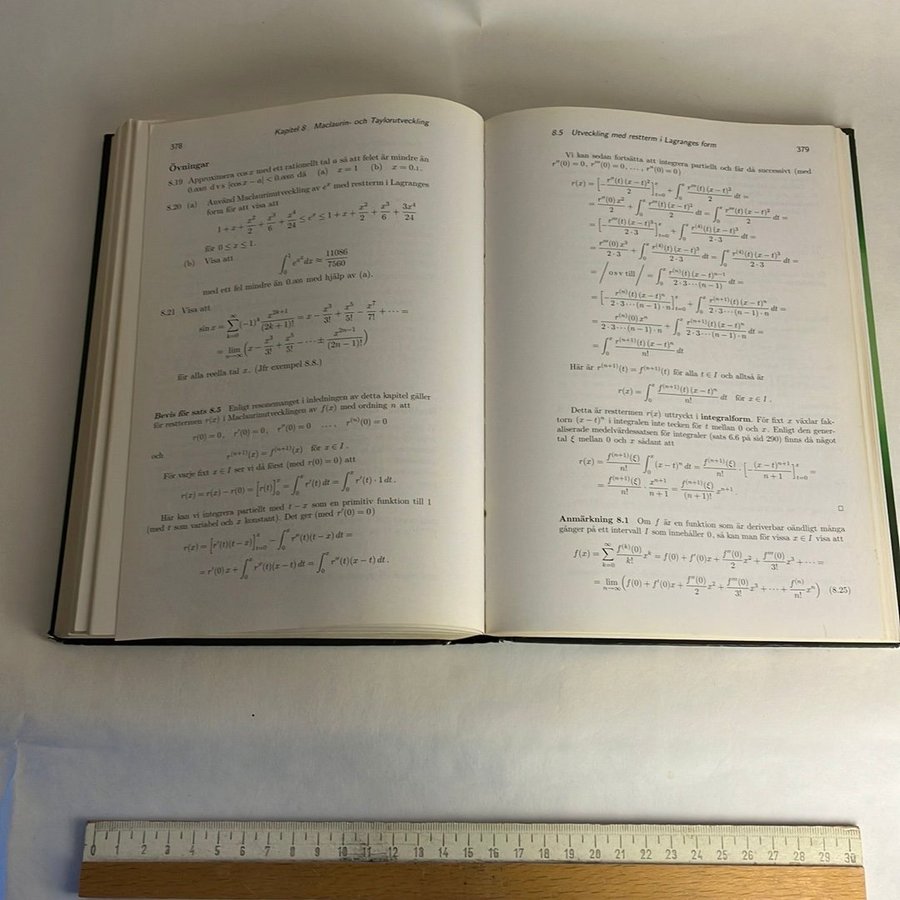 378
Kapitel 8 Maclaurin- och Taylorutveckling
Övningar
8.19 Approximera cos x med ett rationellt tal a så att felet är mindre än
0.005 d v s |cos x − a| < 0.005 då (a) x = 1 (b) x = 0.1.
8.20 (a) Använd Maclaurinutveckling av e^x med restterm i Lagranges
form för att visa att
1 + x + x²/2 + x³/6 + x⁴/24 ≤ e^x ≤ 1 + x + x²/2 + x³/6 + 3x⁴/24
för 0 ≤ x ≤ 1.
(b) Visa att
∫₀¹ e^{x²} dx ≈ 11086/7560
med ett fel mindre än med hjälp av (a).
8.21 Visa att
sin x = ∑_{k=0}^{∞} (−1)^k x^{2k+1}/(2k+1)! = x − x³/3! + x⁵/5! − x⁷/7! + ⋯ =
= lim_{n→∞} (x − x³/3! + x⁵/5! − ⋯ ± x^{2n−1}/(2n−1)!)
för alla reella tal x. (Jfr exempel 8.8.)
Bevis för sats 8.5 Enligt resonemanget i inledningen av detta kapitel gäller
för resttermen r(x) i Maclaurinutvecklingen av f(x) med ordning n att
r(0) = 0, r′(0) = 0, r″(0) = 0 ⋯, r^{(n)}(0) = 0
och
r^{(n+1)}(x) = f^{(n+1)}(x) för x ∈ I.
För varje fixt x ∈ I ser vi då först (med r(0) = 0) att
r(x) = r(x) − r(0) = [r(t)]₀^x = ∫₀^x r′(t) dt = ∫₀^x r′(t) · 1 dt.
Här kan vi integrera partiellt med t − x som en primitiv funktion till 1
(med t som variabel och x konstant). Det ger (med r′(0) = 0)
r(x) = [r′(t)(t − x)]_{t=0}^x − ∫₀^x r″(t)(t − x) dt =
= r′(0) x + ∫₀^x r″(t)(x − t) dt = ∫₀^x r″(t)(x − t) dt.
8.5 Utveckling med restterm i Lagranges form
379
Vi kan sedan fortsätta att integrera partiellt och får då successivt (med
r″(0) = 0, r‴(0) = 0, …, r^{(n)}(0) = 0)
r(x) = [−r″(t)(x − t)²/2]_{t=0}^x + ∫₀^x r‴(t)(x − t)²/2 dt =
= r″(0) x²/2 + ∫₀^x r‴(t)(x − t)²/2 dt = ∫₀^x r‴(t)(x − t)²/2 dt =
= [−r‴(t)(x − t)³/(2 · 3)]_{t=0}^x + ∫₀^x r^{(4)}(t)(x − t)³/(2 · 3) dt =
= r‴(0) x³/(2 · 3) + ∫₀^x r^{(4)}(t)(x − t)³/(2 · 3) dt = ∫₀^x r^{(4)}(t)(x − t)³/(2 · 3) dt =
= / o s v till / = ∫₀^x r^{(n)}(t)(x − t)^{n−1}/(2 · 3 ⋯ (n − 1)) dt =
= [−r^{(n)}(t)(x − t)^n/(2 · 3 ⋯ (n − 1) · n)]_{t=0}^x + ∫₀^x r^{(n+1)}(t)(x − t)^n/(2 · 3 ⋯ (n − 1) · n) dt =
= r^{(n)}(0) x^n/(2 · 3 ⋯ (n − 1) · n) + ∫₀^x r^{(n+1)}(t)(x − t)^n/(2 · 3 ⋯ (n − 1) · n) dt =
= ∫₀^x r^{(n+1)}(t)(x − t)^n/n! dt
Här är r^{(n+1)}(t) = f^{(n+1)}(t) för alla t ∈ I och alltså är
r(x) = ∫₀^x f^{(n+1)}(t)(x − t)^n/n! dt för x ∈ I.
Detta är resttermen r(x) uttryckt i integralform. För fixt x växlar fak-
torn (x − t)^n i integralen inte tecken för t mellan 0 och x. Enligt den gener-
aliserade medelvärdessatsen för integraler (sats 6.6 på sid 290) finns då något
tal ξ mellan 0 och x sådant att
r(x) = f^{(n+1)}(ξ)/n! ∫₀^x (x − t)^n dt = f^{(n+1)}(ξ)/n! · [−(x − t)^{n+1}/(n + 1)]_{t=0}^x =
= f^{(n+1)}(ξ)/n! · x^{n+1}/(n + 1) = f^{(n+1)}(ξ)/(n + 1)! x^{n+1}.
□
Anmärkning 8.1 Om f är en funktion som är deriverbar oändligt många
gånger på ett intervall I som innehåller 0, så kan man för vissa x ∈ I visa att
f(x) = ∑_{k=0}^{∞} f^{(k)}(0)/k! x^k = f(0) + f′(0)x + f″(0)/2 x² + f‴(0)/3! x³ + ⋯ =
= lim_{n→∞} (f(0) + f′(0)x + f″(0)/2 x² + f‴(0)/3! x³ + ⋯ + f^{(n)}/n! x^n) (8.25)
0 1 2 3 4 5 6 7 8 9 10 11 12 13 14 15 16 17 18 19 20 21 22 23 24 25 26 27 28 29 30